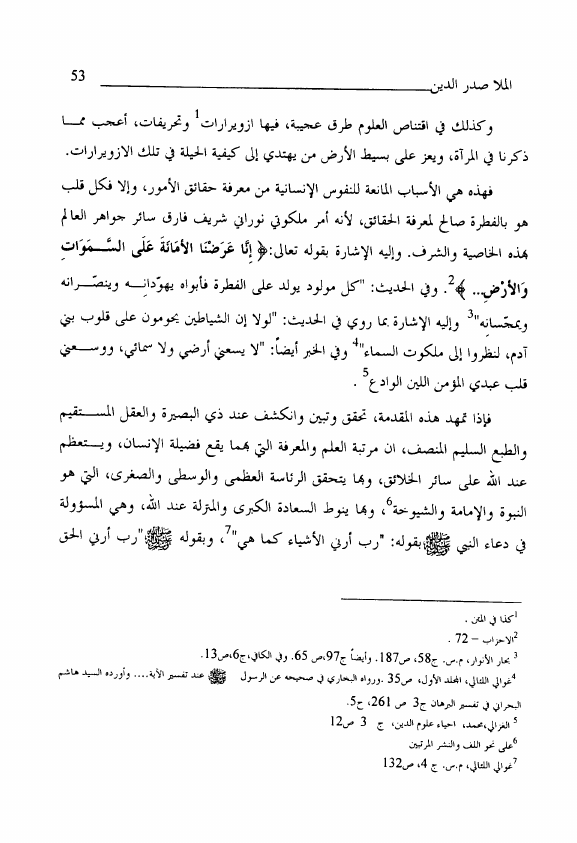 53
الملا صدر الدين
وكذلك في اقتناص العلوم طرق عجيبة، فيها ازويرارات1 وتحريفات، أعجب ممـــا
ذكرنا في المرآة، ويعز على بسيط الأرض من يهتدي إلى كيفية الحيلة في تلك الازويرارات.
فهذه هي الأسباب المانعة للنفوس الإنسانية من معرفة حقائق الأمور، وإلا فكل قلب
هو بالفطرة صالح لمعرفة الحقائق، لأنه أمر ملكوتي نوراني شريف فارق سائر جواهر العالم
بهذه الخاصية والشرف. وإليه الإشارة بقوله تعالى:﴿ إِنَّا عَرَضْنَا الأَمَانَةَ عَلَى السَّــمَوَاتِ
وَالأَرْضِ... ﴾2. وفي الحديث: "كل مولود يولد على الفطرة فأبواه يهوّدانــه وينصّــرانه
ويمجّسانه"3 وإليه الإشارة بما روي في الحديث: "لولا إن الشياطين يحومون على قلوب بني
آدم، لنظروا إلى ملكوت السماء"4 وفي الخبر أيضاً: "لا يسعني أرضي ولا سمائي، ووســعني
قلب عبدي المؤمن اللين الوادع5 .
فإذا تمهد هذه المقدمة، تحقق وتبين وانكشف عند ذي البصيرة والعقل المســـتقيم
والطبع السليم المنصف، ان مرتبة العلم والمعرفة التي بهما يقع فضيلة الإنسان، ويـــتعظم
عند الله على سائر الخلائق، وبها يتحقق الرئاسة العظمى والوسطى والصغرى، التي هو
النبوة والإمامة والشيوخة6، وبها ينوط السعادة الكبرى والمنزلة عند الله، وهي المسؤولة
في دعاء النبي ﷺ بقوله: "رب أرني الأشياء كما هي"7، وبقوله ﷺ "رب أرني الحق
1كذا في المتن .
2الاحزاب – 72 .
3 بحار الأنوار، م.س. ج58، ص187. وأيضاً ج97،ص 65. وفي الكافي،ج6،ص13.
4غوالي اللئالي، المجلد الأول، ص35 .ورواه البخاري في صحيحه عن الرسول ﷺ عند تفسير الآية.... وأورده السيد هاشم
البحراني في تفسير البرهان ج3 ص 261، ج5.
5 الغزالي،محمد، احياء علوم الدين، ج 3 ص12
6على نحو اللف والنشر المرتبين
7غوالي اللئالي، م.س. ج 4، ص132